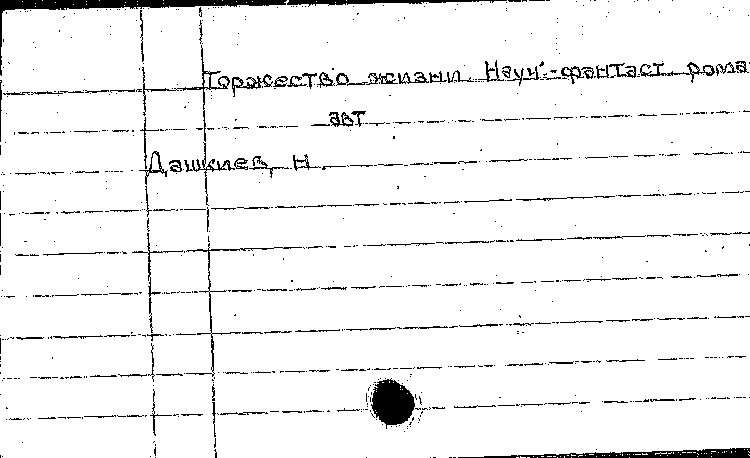 Торжество жизни. Науч.-фантаст. рома
авт.
Дашкиев, Н.